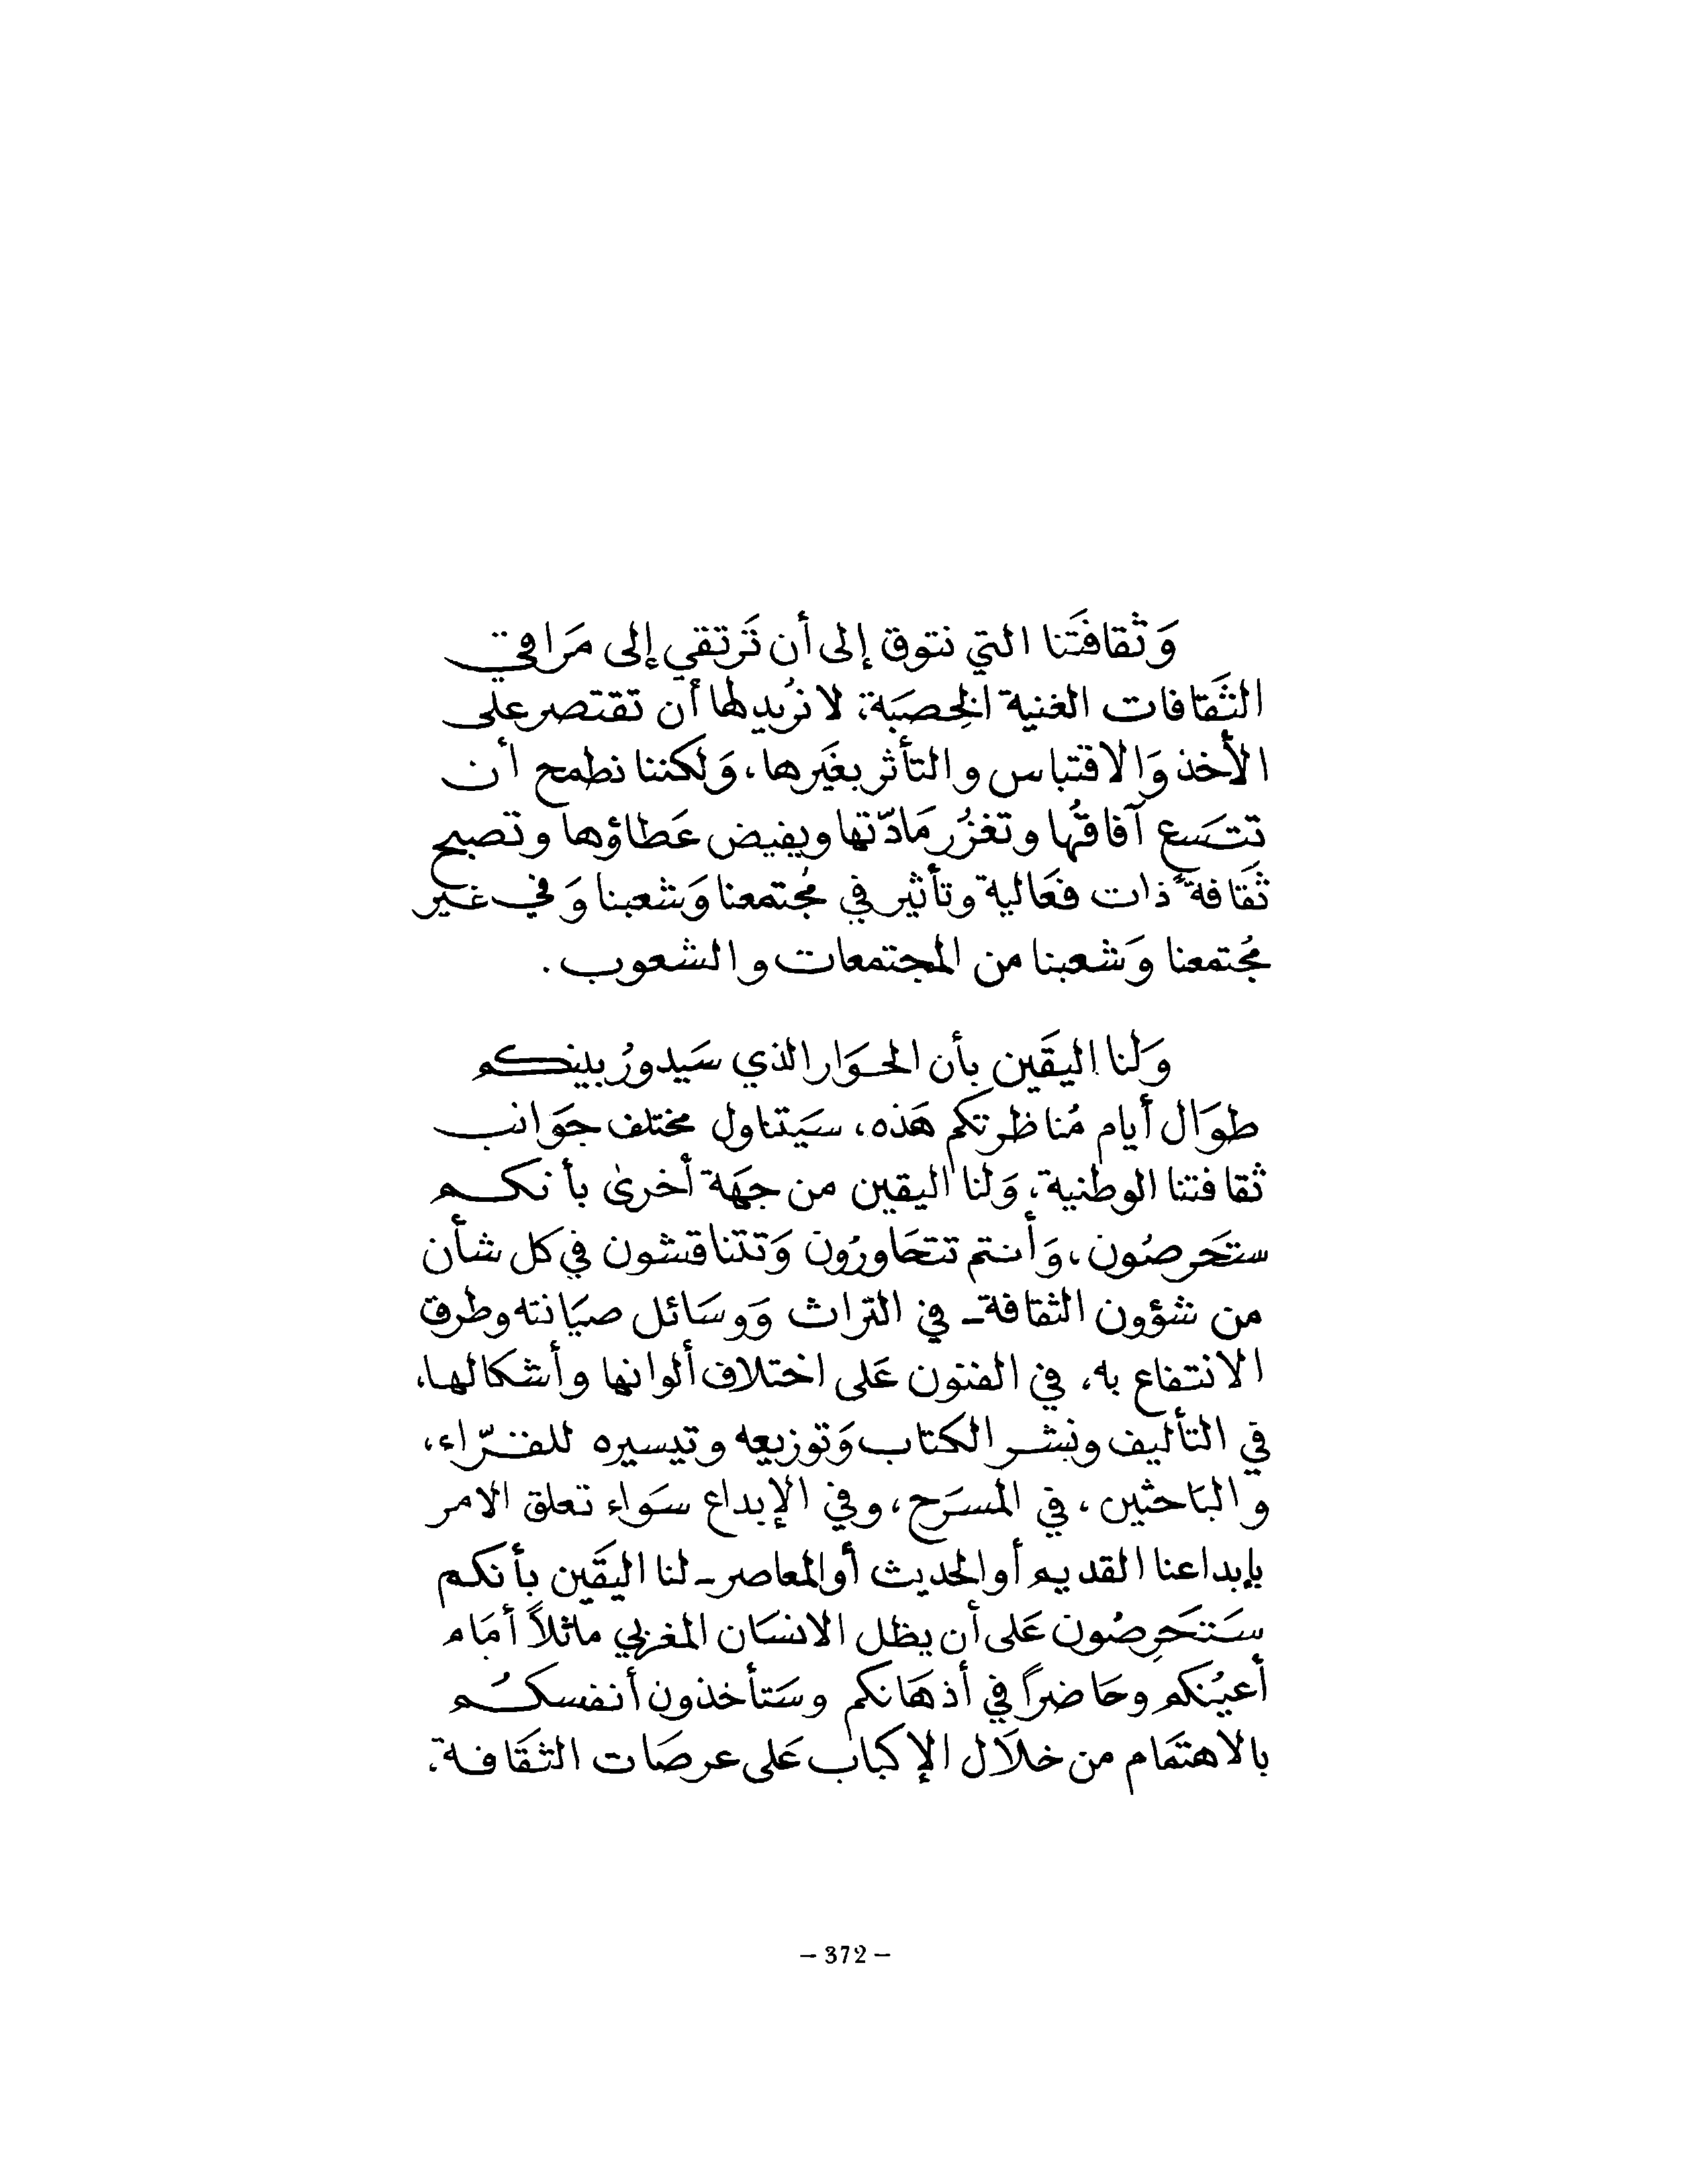 وَثقافَتنا التي نتوق إلى أن تَرتقي إلى مَراقي
الثَقافات الغنية الخِصبَة، لا نرُيد لها أن تقتصر على
الأخذ وَالاقتباس والتأثر بغَيرها، وَلكننا نطمح أن
تتسَع آفاقُها وتغزُر مَادّتها ويفيض عَطاؤها وتصبح
ثَقافة ذات فعَالية وتأثير في مُجتمعنا وَشعبنا وَفي غير
مُجتمعنا وَشعبنا من المجتمعات والشعوب.
وَلنا اليقَين بأن الحوَار الذي سَيدورُ بينكم
طوَال أيام مُناظرتكم هَذه، سيَتناول مختلف جوَانب
ثقافتنا الوطنية، وَلنا اليقين من جهَة أخرىٰ بأنكم
ستحَرصُون، وَأنتم تتحَاورُون وَتتناقشون في كل شأن
من شؤون الثقافة ـ في التراث وَوسَائل صيَانته وطرق
الانتفاع به، في الفنون عَلى اختلاف ألوانها وأشكالها،
في التأليف ونشر الكتاب وَتوزيعه وتيسيره للقرّاء،
والبَاحثين، في المسرَح، وفي الإبداع سوَاء تعلق الامر
بإبداعنا القديم أو الحديث أو المعاصر ـ لنا اليقَين بأنكم
سَتحَرِصُون عَلى أن يظل الانسَان المغربي ماثلاً أمَام
أعيُنكم وحَاضراً في أذهَانكم وسَتأخذون أنفسكُم
بالاهتمَام من خلاَل الإكباب عَلى عرصَات الثقَافة.
– 372 –